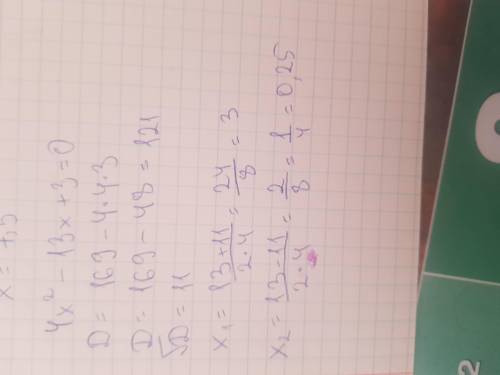 x = 7,5
4x² - 13x + 3 = 0
D = 169 - 4·4·3
D = 169 - 48 = 121
√D = 11
x₁ = (13+11)/(2·4) = 24/8 = 3
x₂ = (13-11)/(2·4) = 2/8 = 1/4 = 0,25
2